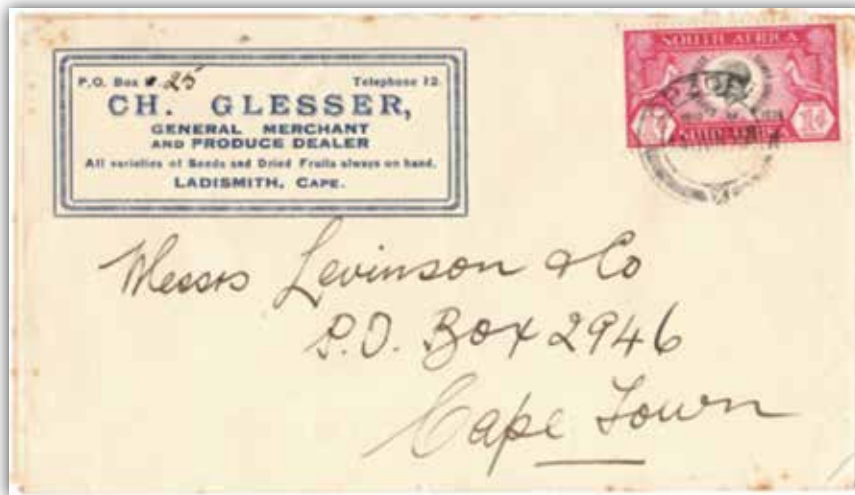 P.O. Box 25 Telephone 12.
CH. GLESSER,
GENERAL MERCHANT
AND PRODUCE DEALER
All varieties of Seeds and Dried Fruits always on hand.
LADISMITH, CAPE.
SOUTH AFRICA
1d
Messrs Levinson & Co
P.O. Box 2946
Cape Town